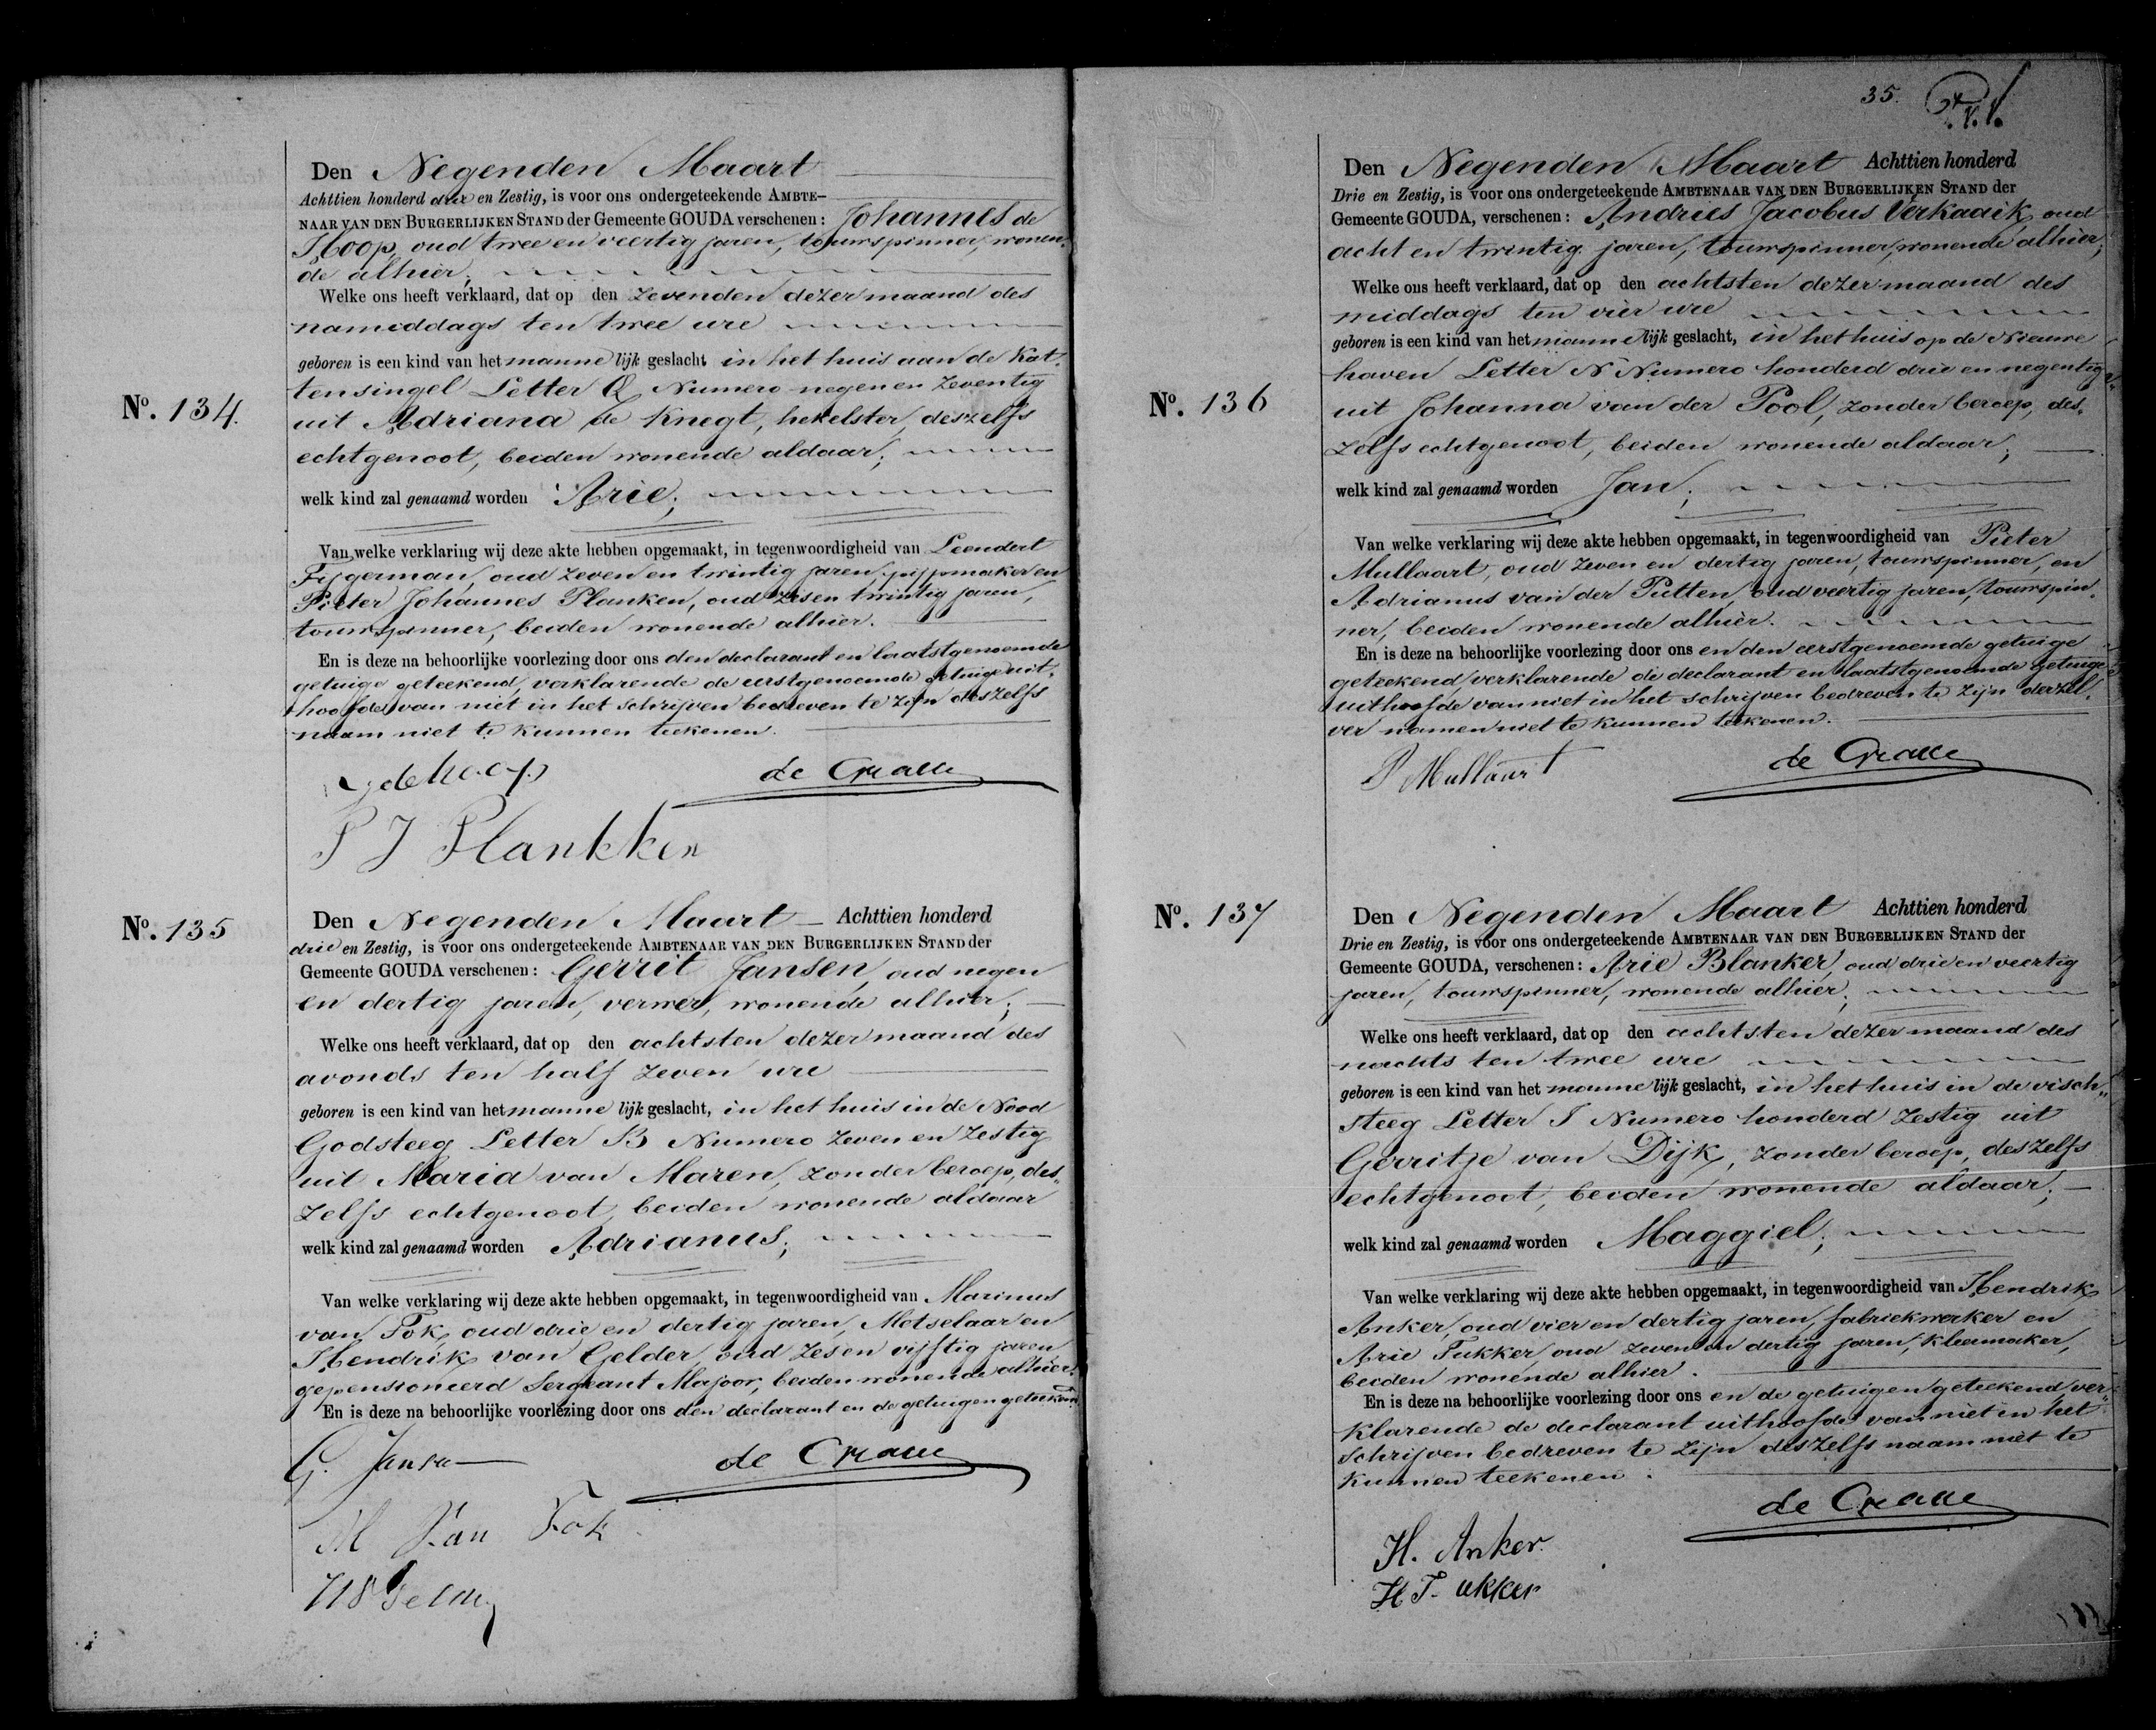 No. 134.
Den Negenden Maart
Achttien honderd drie en Zestig, is voor ons ondergeteekende AMBTE-
NAAR VAN DEN BURGERLIJKEN STAND der Gemeente GOUDA verschenen: Johannes de
Hoop, oud twee en veertig jaren, touwspinner, wonen-
de alhier;
Welke ons heeft verklaard, dat op den zevenden dezer maand des
nameddags ten twee ure
geboren is een kind van het mannelijk geslacht in het huis aan de Kat-
tensingel Letter Q Numero negen en Zeventig
uit Adriana de Knegt, hekelster, deszelfs
echtgenoot, beiden wonende aldaar;
welk kind zal genaamd worden Arie;
Van welke verklaring wij deze akte hebben opgemaakt, in tegenwoordigheid van Leendert
oud zeven en twintig jaren, pijpmaker en
Pieter Johannes Planken, oud zes en twintig jaren,
touwspinner, beiden wonende alhier.
En is deze na behoorlijke voorlezing door ons den declarant en laatstgenoemde
getuige geteekend, verklarende de eerstgenoemde getuige uit-
hoofde van niet in het schrijven bedreven te zijn deszelfs
naam niet te kunnen teekenen.
de Hoop
P J Plankken
No. 135
Den Negenden Maart Achttien honderd
drie en Zestig, is voor ons ondergeteekende AMBTENAAR VAN DEN BURGERLIJKEN STAND der
Gemeente GOUDA verschenen: Gerrit Jansen, oud negen
en dertig jaren, verwer, wonende alhier;
Welke ons heeft verklaard, dat op den achtsten dezer maand des
avonds ten half zeven ure
geboren is een kind van het mannelijk geslacht, in het huis in de Nood
Godsteeg Letter B Numero zeven en Zestig
uit Maria van Maren, zonder beroep, des-
zelfs echtgenoot, beiden wonende aldaar
welk kind zal genaamd worden Adrianus;
Van welke verklaring wij deze akte hebben opgemaakt, in tegenwoordigheid van Marinus
van Fok, oud drie en dertig jaren, Metselaar en
Hendrik van Gelder, oud zes en vijftig jaren
gepensioneerd Sergeant Majoor, beiden wonende alhier.
En is deze na behoorlijke voorlezing door ons den declarant en de getuigen geteekend.
G. Jansen
M Van Fok
35.
No. 136
Den Negenden Maart Achttien honderd
Drie en Zestig, is voor ons ondergeteekende AMBTENAAR VAN DEN BURGERLIJKEN STAND der
Gemeente GOUDA, verschenen: Andries Jacobus Verkaaik, oud
acht en twintig jaren, touwspinner, wonende alhier;
Welke ons heeft verklaard, dat op den achtsten dezer maand des
middags ten vier ure
geboren is een kind van het mannelijk geslacht, in het huis op de Nieuwe
haven Letter N Numero honderd drie en negentig
uit Johanna van der Pool, zonder beroep, des-
zelfs echtgenoot, beiden wonende aldaar;
welk kind zal genaamd worden Jan;
Van welke verklaring wij deze akte hebben opgemaakt, in tegenwoordigheid van Pieter
Mullaart, oud zeven en dertig jaren, touwspinner, en
Adrianus van der Putten, oud veertig jaren, touwspin-
ner, beiden wonende alhier.
En is deze na behoorlijke voorlezing door ons en den eerstgenoemde getuige
geteekend, verklarende de declarant en laatstgenoemde getuige
uithoofde van niet in het schrijven bedreven te zijn derzel-
ver namen niet te kunnen teekenen.
P Mullaart
No. 137
Den Negenden Maart Achttien honderd
Drie en Zestig, is voor ons ondergeteekende AMBTENAAR VAN DEN BURGERLIJKEN STAND der
Gemeente GOUDA, verschenen: Arie Blanker, oud drie en veertig
jaren, touwspinner, wonende alhier;
Welke ons heeft verklaard, dat op den achtsten dezer maand des
nachts ten twee ure
geboren is een kind van het mannelijk geslacht, in het huis in de visch-
steeg Letter I Numero honderd zestig uit
Gerritje van Dijk, zonder beroep, deszelfs
echtgenoot, beiden wonende aldaar;
welk kind zal genaamd worden Maggiel;
Van welke verklaring wij deze akte hebben opgemaakt, in tegenwoordigheid van Hendrik
Anker, oud vier en dertig jaren, fabriekwerker en
Arie Tukker, oud zeven en dertig jaren, kleermaker,
beiden wonende alhier.
En is deze na behoorlijke voorlezing door ons en de getuigen geteekend, ver-
klarende de declarant uithoofde van niet in het
schrijven bedreven te zijn deszelfs naam niet te
kunnen teekenen.
H. Anker.
H T. ukker